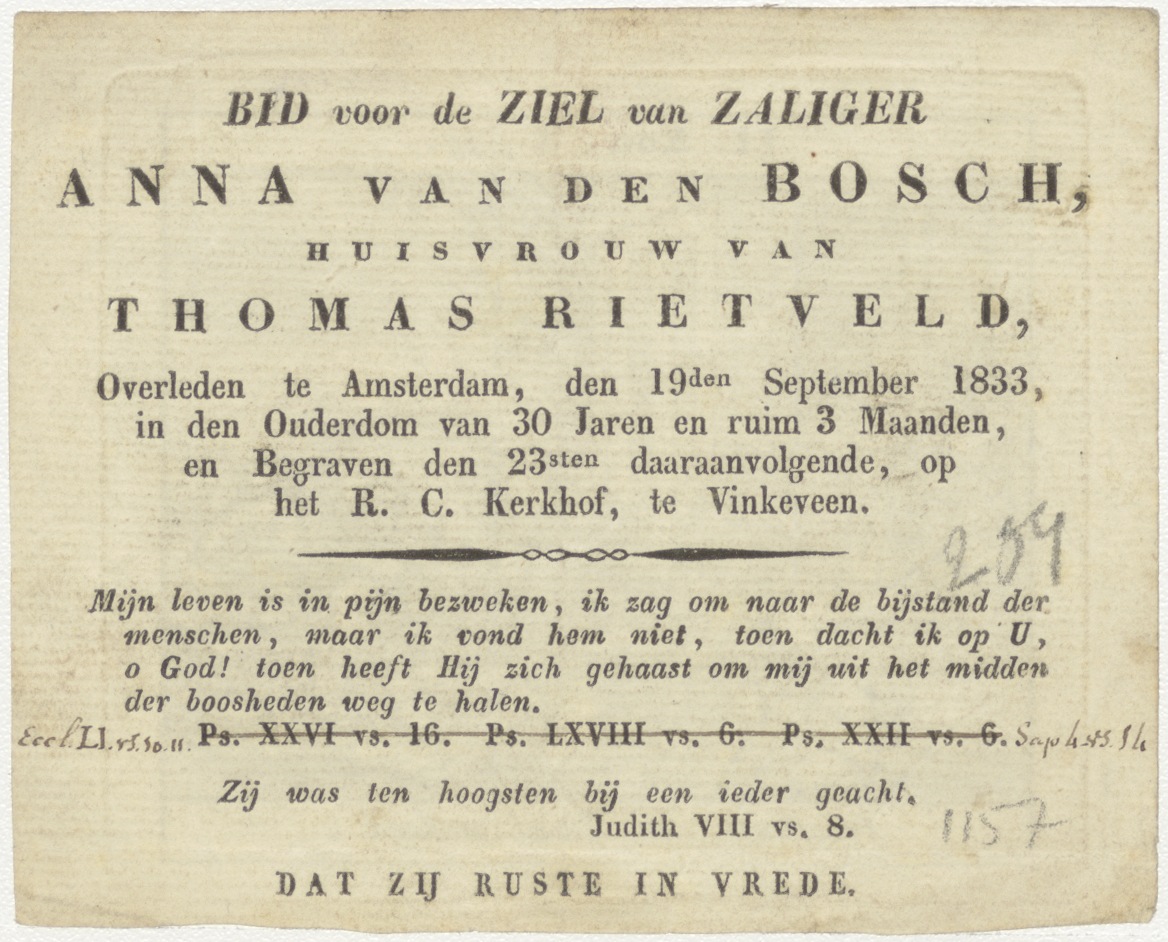 BID voor de ZIEL van ZALIGER
ANNA VAN DEN BOSCH,
HUISVROUW VAN
THOMAS RIETVELD,
Overleden te Amsterdam, den 19den September 1833,
in den Ouderdom van 30 Jaren en ruim 3 Maanden,
en Begraven den 23sten daaraanvolgende, op
het R. C. Kerkhof, te Vinkeveen.
204
Mijn leven is in pijn bezweken, ik zag om naar de bijstand der
menschen, maar ik vond hem niet, toen dacht ik op U,
o God! toen heeft Hij zich gehaast om mij uit het midden
der boosheden weg te halen.
Eccl. LI. vs. 10. 11. Ps. XXVI vs. 16. Ps. LXVIII vs. 6. Ps. XXII vs. 6. Sap 4 vs. 14
Zij was ten hoogsten bij een ieder geacht.
Judith VIII vs. 8.
1157
DAT ZIJ RUSTE IN VREDE.